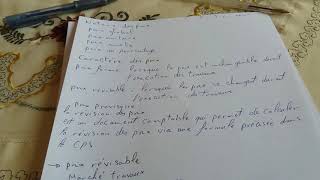 Nature des prix
Prix global
Prix unitaire
Prix mixte
Caractère des prix
Prix ferme lorsque le prix est inchangeable durant
l'exécution des travaux
Prix revisable : lorsque le prix se changent durant
l'exécution des travaux
Prix provisoire
la révision des prix
est un document comptable qui permet de calculer
la révision de prix via une formule précisée dans
le CPS
→ prix révisable
Marché travaux